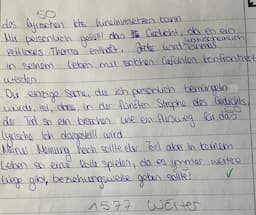 so
das lyrischen Ichs hineinversetzen kann.
Mir persönlich gefällt das Gedicht, da es ein
zeitloses Thema enthält, jeder wahrscheinlich einmal
in seinem Leben mit solchen Gefühlen konfrontiert
werden
Die einzige Sache, die ich persönlich bemängeln
würde, ist, dass in der fünften Strophe des Gedichts,
der Tod so ein bisschen wie ein Ausweg für das
lyrische Ich dargestellt wird.
Meiner Meinung nach sollte der Tod aber in keinem
Leben so eine Rolle spielen, da es immer weitere
Wege gibt, beziehungsweise geben sollte!
1577 Wörter